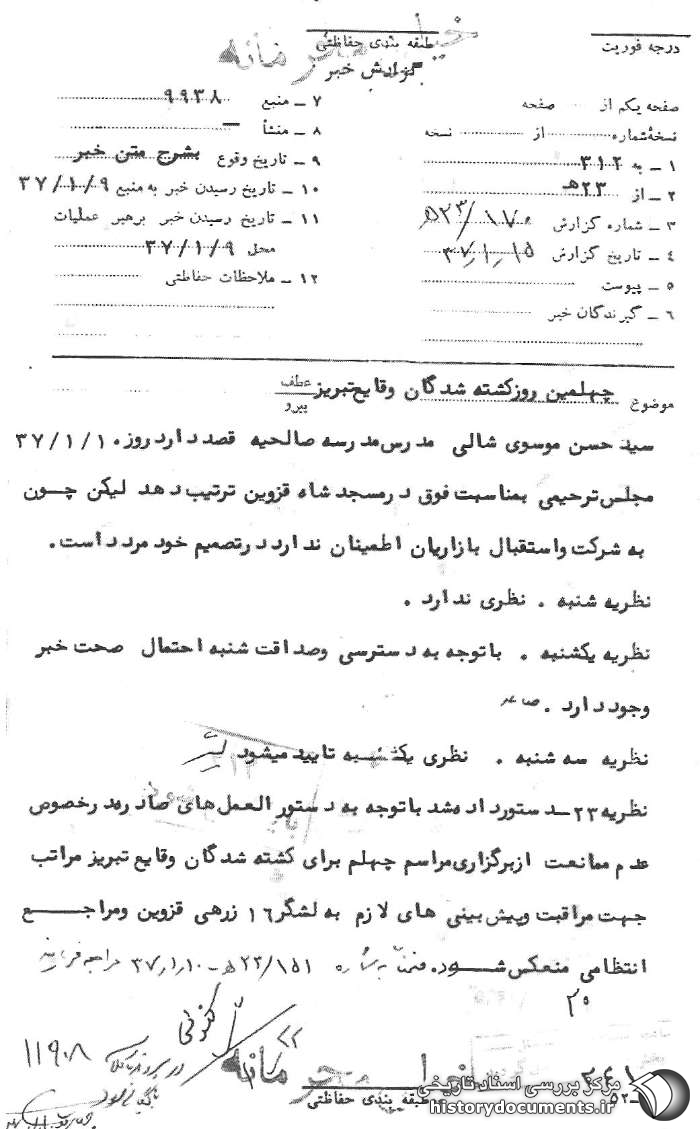 خیلی محرمانه
طبقه بندی حفاظتی
گزارش خبر
درجه فوریت
صفحه یکم از صفحه
نسخهٔ شماره از نسخه
۱ ــ به ۳۱۲
۲ ــ از ۲۳هـ
۳ ــ شماره گزارش ۵۲۳/۱۷۰
۴ ــ تاریخ گزارش ۳۷٫۱٫۱۵
۵ ــ پیوست
۶ ــ گیرندگان خبر
۷ ــ منبع ۹۹۳۸
۸ ــ منشأ ــ
۹ ــ تاریخ وقوع بشرح متن خبر
۱۰ ــ تاریخ رسیدن خبر به منبع ۳۷/۱/۹
۱۱ ــ تاریخ رسیدن خبر برهبر عملیات
محل ۳۷/۱/۹
۱۲ ــ ملاحظات حفاظتی
موضوع چهلمین روزکشته شدگان وقایع تبریز عطف
پیرو
سید حسن موسوی شالی مدرس مدرسه صالحیه قصد دارد روز ۳۷/۱/۱۰
مجلس ترحیمی بمناسبت فوق در مسجد شاه قزوین ترتیب دهد لیکن چون
به شرکت و استقبال بازاریان اطمینان ندارد در تصمیم خود مردد است.
نظریه شنبه . نظری ندارد .
نظریه یکشنبه . با توجه به دسترسی و صداقت شنبه احتمال صحت خبر
وجود دارد .
نظریه سه شنبه . نظری یکشنبه تایید میشود
نظریه ۲۳ــ دستور داده شد با توجه به دستور العمل های صادره در خصوص
عدم ممانعت از برگزاری مراسم چهلم برای کشته شدگان وقایع تبریز مراتب
جهت مراقبت و پیش بینی های لازم به لشگر ۱۶ زرهی قزوین و مراجع
انتظامی منعکس شود. ضمناً به شماره ۲۳/۱۵۱هـ ــ ۳۷٫۱٫۱۰ مراجعه فرمایند
۲۰
۲۲
۱۱۹۰۸
خیلی محرمانه
طبقه بندی حفاظتی
مرکز بررسی اسناد تاریخی
historydocuments.ir